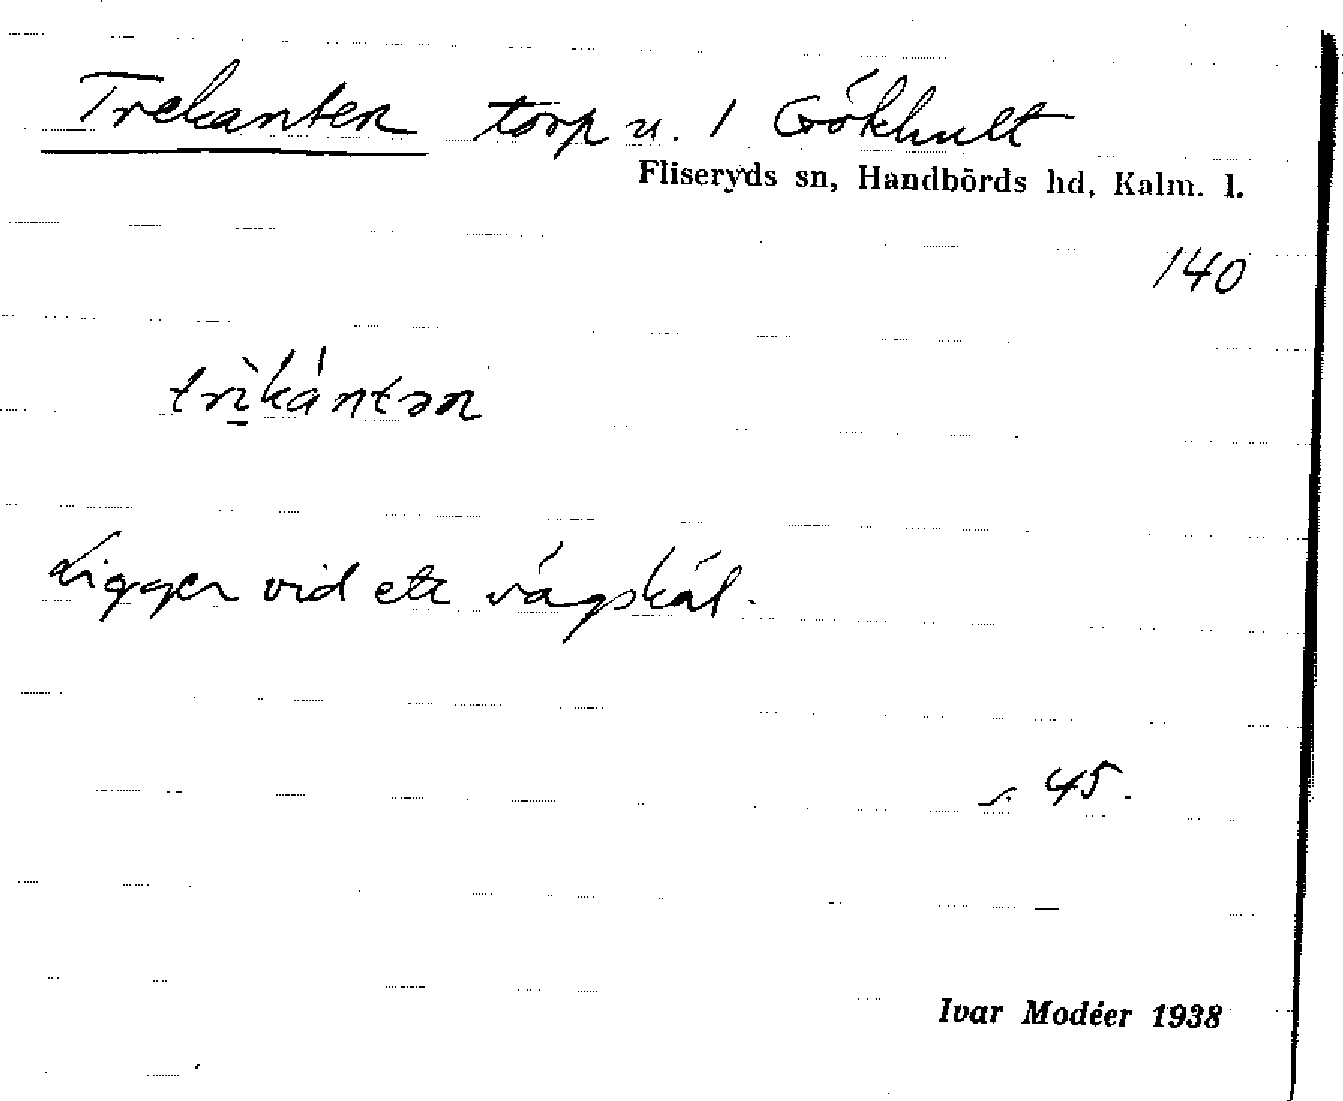 Trekanten torp u. 1 Gökhult
Fliseryds sn, Handbörds hd, Kalm. l.
140
trìkántən
Ligger vid ett vägskäl.
s. 45.
Ivar Modéer 1938